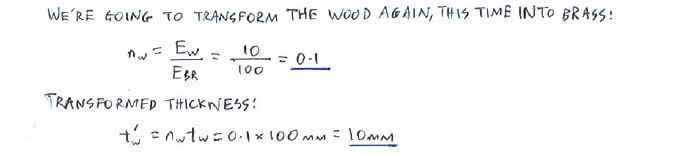 WE'RE GOING TO TRANSFORM THE WOOD AGAIN, THIS TIME INTO BRASS:
n_w = E_w / E_BR = 10 / 100 = 0.1
TRANSFORMED THICKNESS:
t'_w = n_w t_w = 0.1 × 100 mm = 10mm